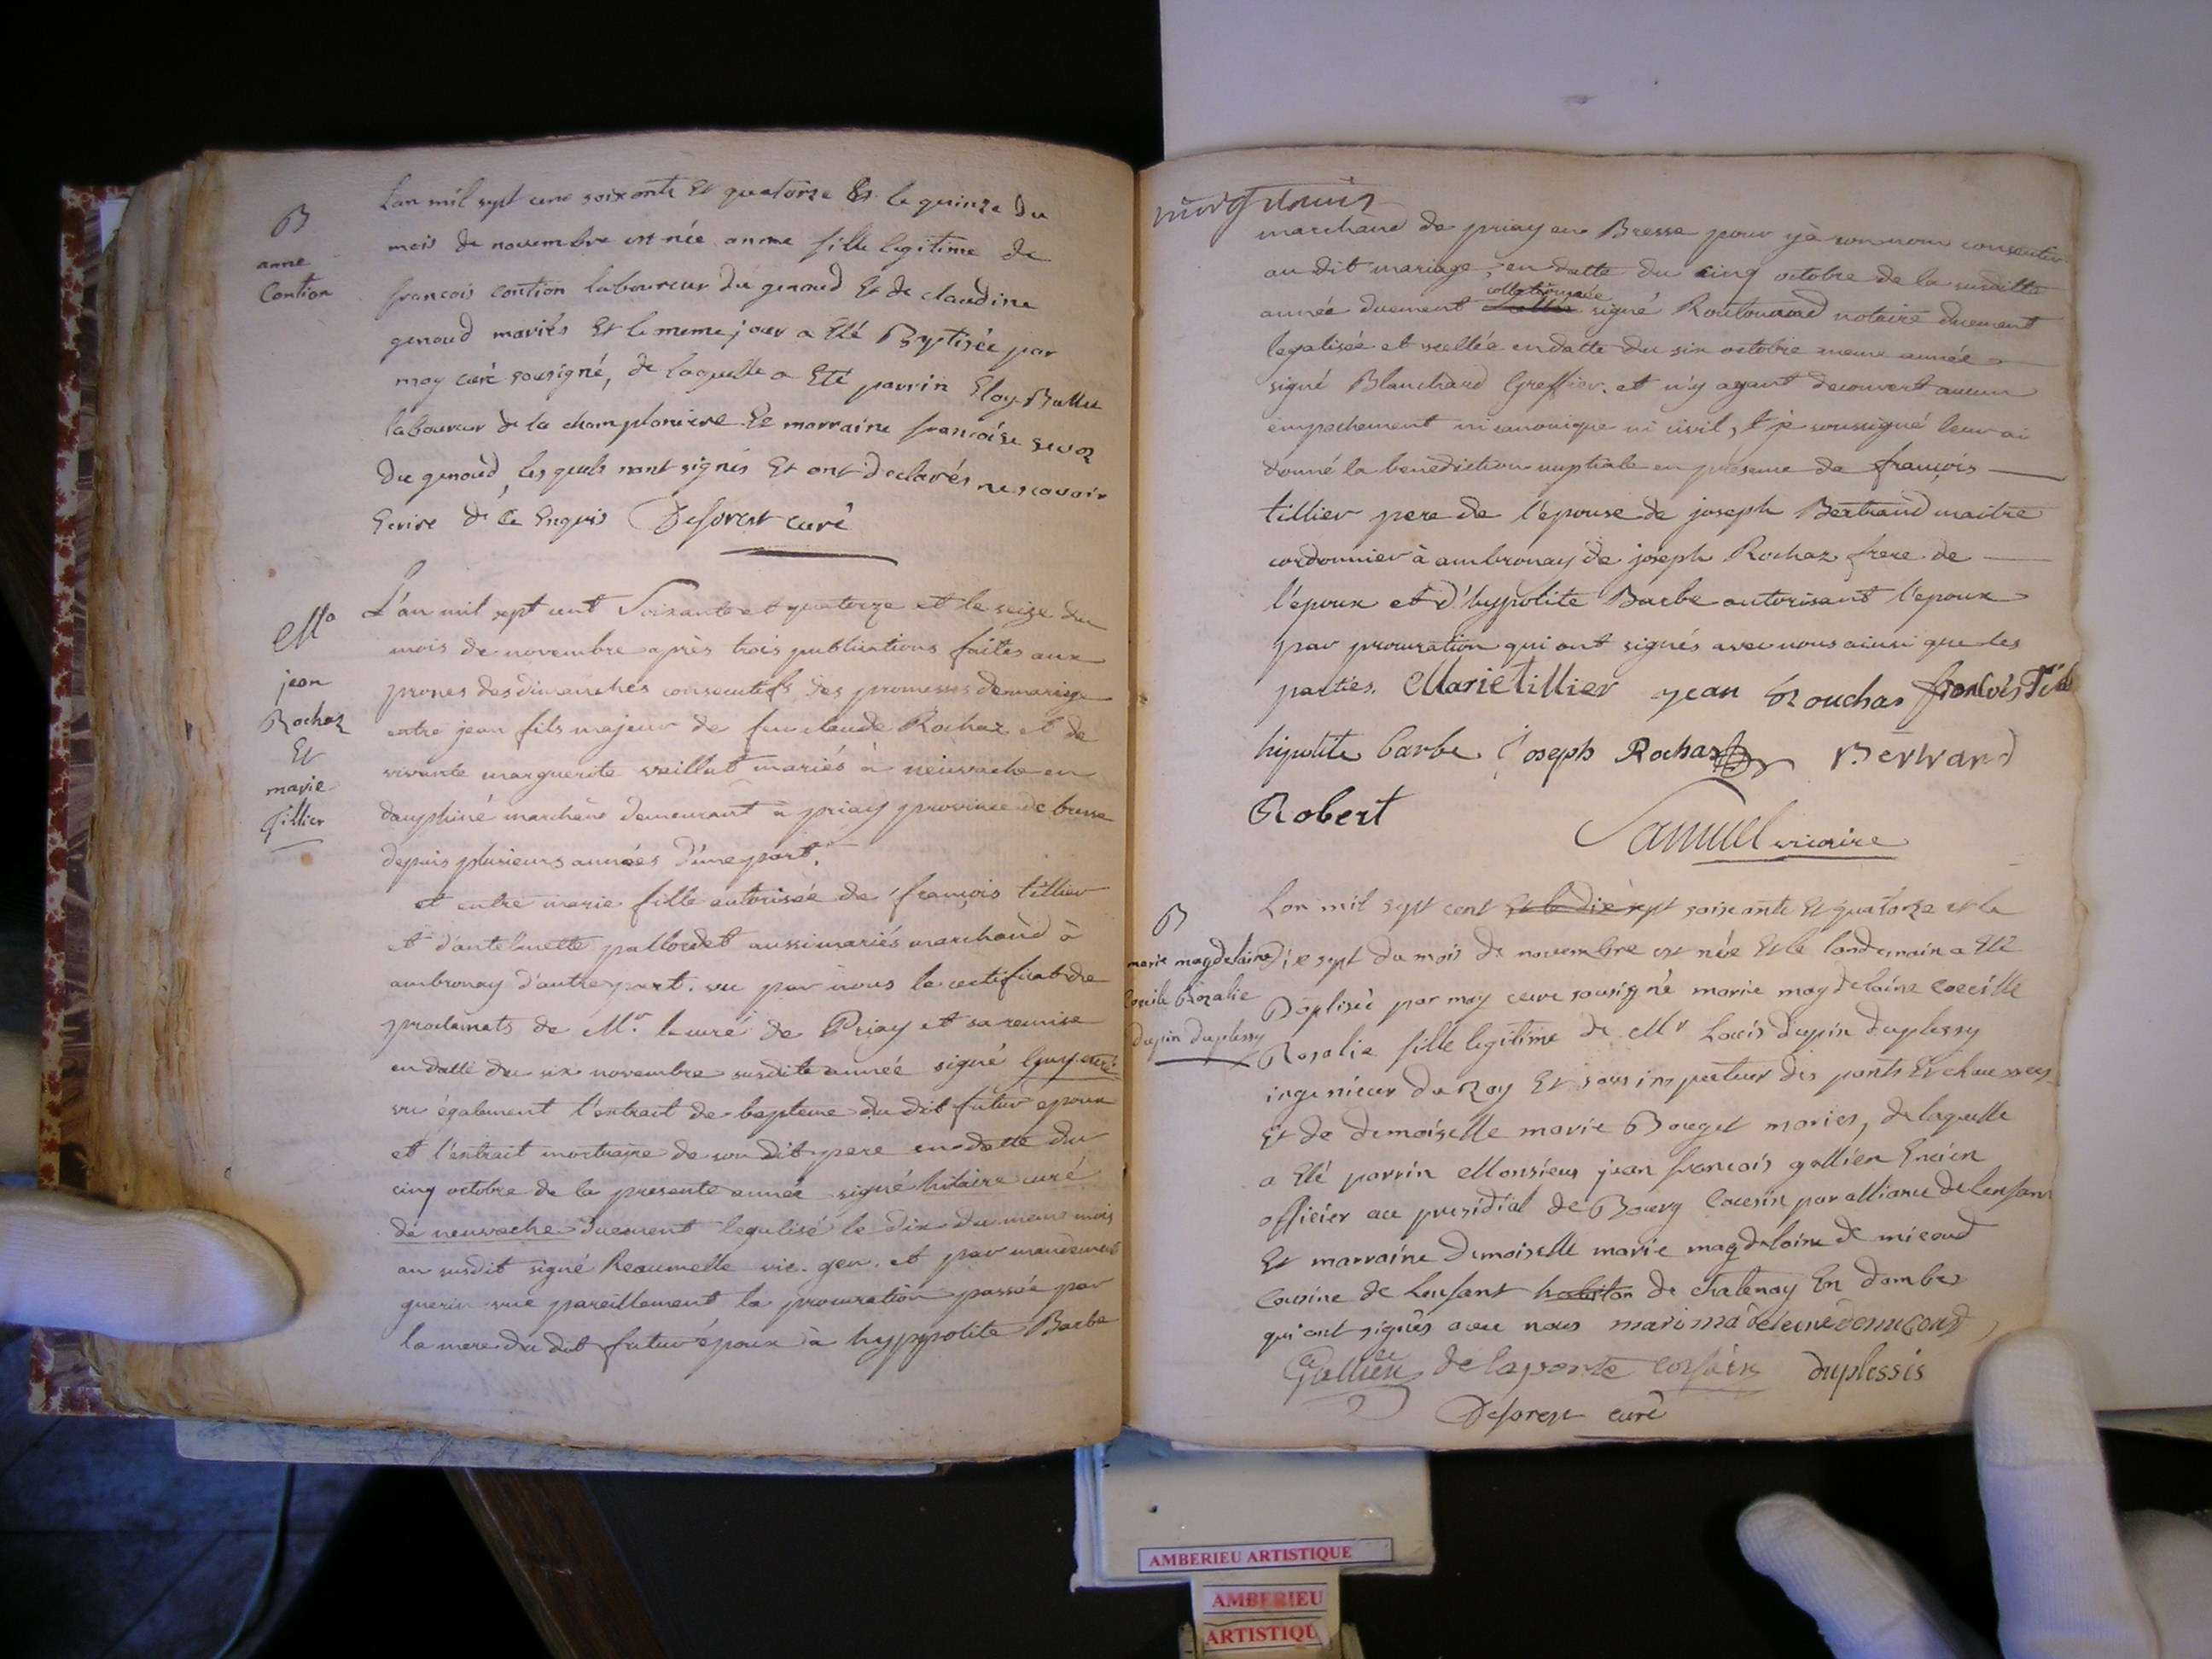 B
anne
Contion
Lan mil sept cent soixante Et quatorze Et le quinze du
mois de novembre est née anne fille legitime de
francois contion laboureur du genoud Et de claudine
genoud mariés Et le meme jour a Eté Baptisée par
moy curé sousigné, de laquelle a Eté parrin Eloy Ballet
laboureur de la champlaniere Et marraine francoise
du genoud, les quels nont signés Et ont declarés ne scavoir
Ecrire de Ce Enquis Deforest curé
Ma
jean
Rochaz
Et
marie
tillier
L'an mil sept cent soixante et quatorze et le seize du
mois de novembre après trois publications faites aux
prones des dimanches consecutifs des promesses de mariage
entre jean fils majeur de feu claude Rochaz et de
vivante marguerite mariés à neuvache en
dauphiné marchand demeurant à priay province de bresse
depuis plusieurs années d'une part.
et entre marie fille autorisée de françois tillier
et d'antelmette aussi mariés marchand à
ambronay d'autre part. vu par nous le certificat de
proclamats de Mr. le curé de Priay et sa remise
en datte du six novembre susdite année signé Guy curé
vu également l'extrait de bapteme du dit futur epoux
et l'extrait mortuaire de son dit pere en datte du
cinq octobre de la presente année signé hilaire curé
de neuvache duement legalisé le dix du meme mois
an susdit signé vic. gen. et par mandement
guerin vue pareillement la procuration passée par
la mere du dit futur époux à hyppolite Barbe
marchand de priay en Bresse pour y à son nom consentir
au dit mariage, en datte du cinq octobre de la susditte
année duement collationnée signé notaire duement
legalisée et scellée en datte du six octobre meme année
signé Blanchard Greffier. et n'y ayant decouvert aucun
empechement ni canonique ni civil, je soussigné leur ai
donné la benediction nuptiale en presence de françois
tillier pere de l'epouse de joseph Bertrand maitre
cordonnier à ambronay de joseph Rochaz frere de
l'epoux et d'hypolite Barbe autorisant l'epoux
par procuration qui ont signés avec nous ainsi que les
parties. Marie tillier jean Rouchas francois
hipolite barbe joseph Rochas Bertrand
Robert
Samuel vicaire
B
marie magdelaine
Cecile Rozalie
dupin duplessy
Lan mil sept cent et le dix sept soixante Et quatorze et le
dix sept du mois de novembre est née Et le landemain a Eté
Baptisée par moy curé sousigné marie magdelaine Coecille
Rosalie fille legitime de Mr Louis dupin duplessy
ingenieur du Roy Et sous inspecteur des ponts Et chaussees
Et de demoiselle marie Bouget mariés, de laquelle
a Eté parrin Monsieur jean francois gallien Encien
officier au presidial de Bourg Cousin par alliance de lenfant
Et marraine demoiselle marie magdelaine de micoud
Cousine de lenfant habitan de chatenay En dombes
qui ont signés avec nous
Gallien de laperte duplessis
Deforest curé
AMBERIEU ARTISTIQUE
AMBERIEU
ARTISTIQU